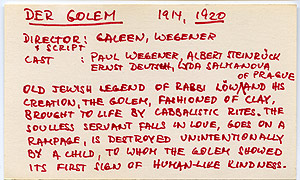 DER GOLEM 1914, 1920
DIRECTOR: GALEEN, WEGENER
& SCRIPT
CAST : PAUL WEGENER, ALBERT STEINRÜCK
ERNST DEUTSCH, LYDA SALMANOVA
OF PRAGUE
OLD JEWISH LEGEND OF RABBI LÖW AND HIS
CREATION, THE GOLEM, FASHIONED OF CLAY,
BROUGHT TO LIFE BY CABBALISTIC RITES. THE
SOULLESS SERVANT FALLS IN LOVE, GOES ON A
RAMPAGE, IS DESTROYED UNINTENTIONALLY
BY A CHILD, TO WHOM THE GOLEM SHOWED
ITS FIRST SIGN OF HUMAN-LIKE KINDNESS.